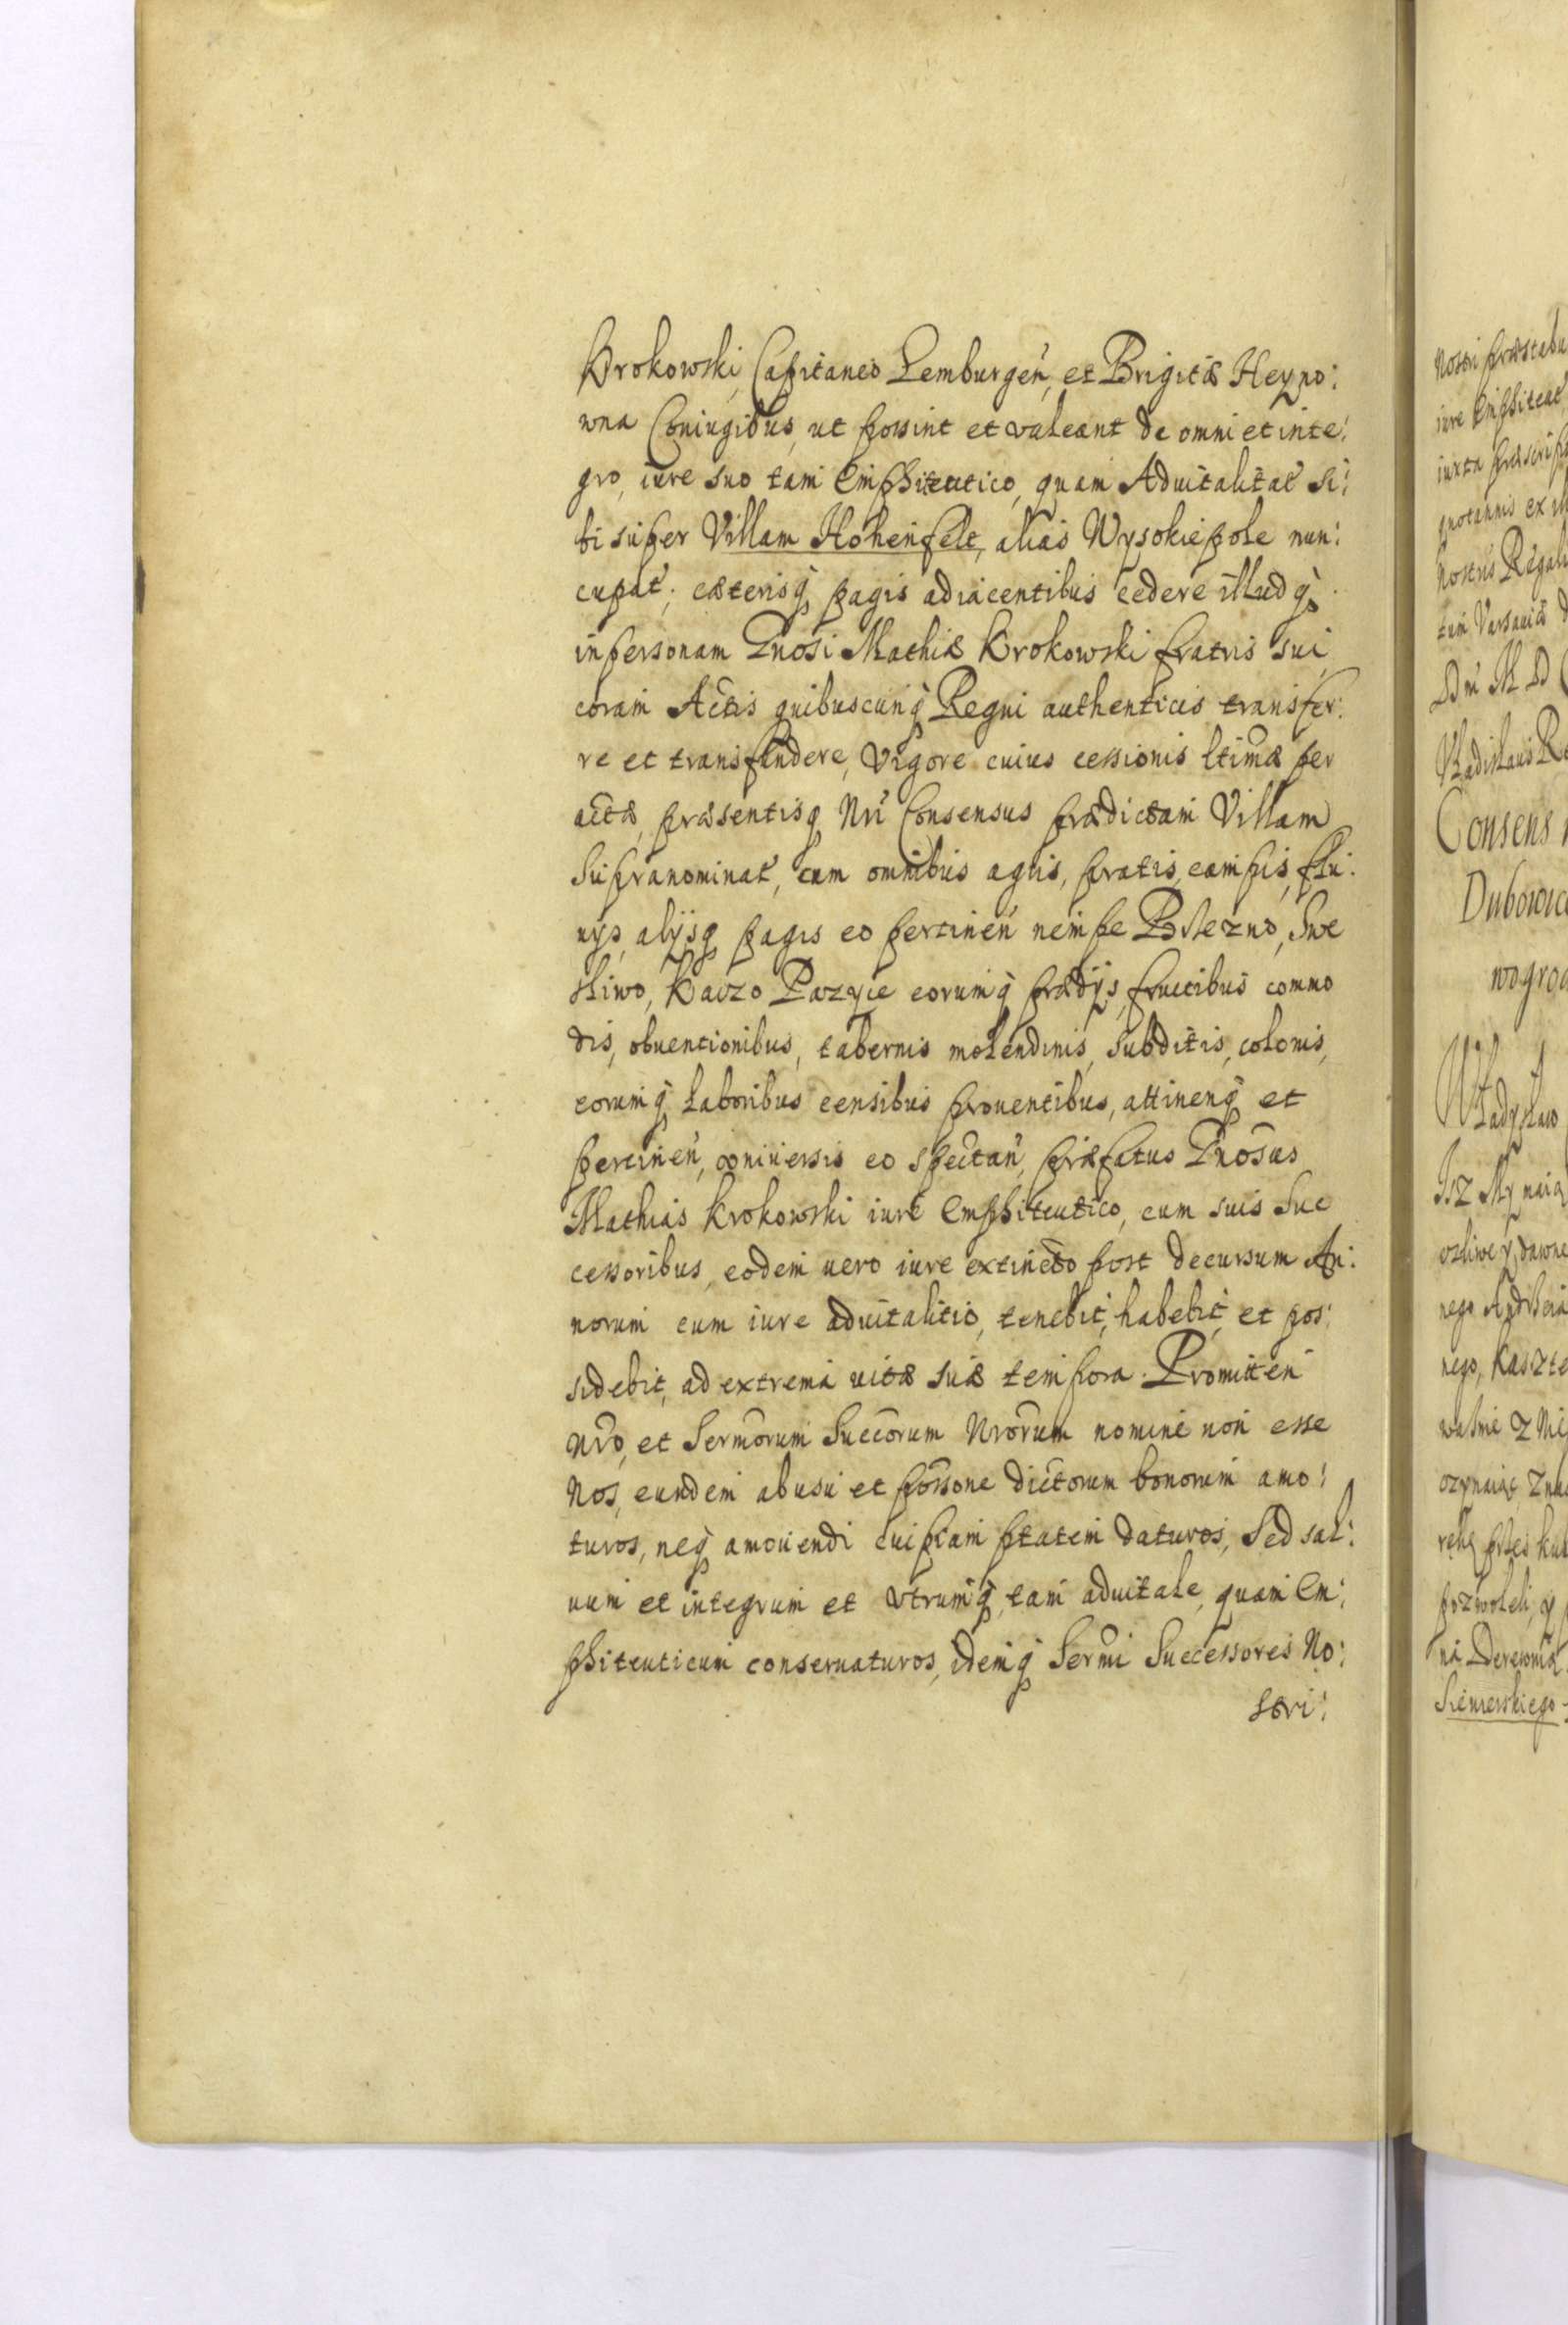 Krokowski, Capitaneo Lemburgeń, et Brigitæ Heyno:
wna Coniugibus, ut possint et valeant de omni et inte:
gro, iure suo tam Emphiteutico, quam Aduitalitať si:
bi super Villam Hohenfelt, alias Wysokiepole nun:
cupať; cæterisq̨ pagis adiacentibus cedere illudq̨
in personam Gnosi Mathiæ Krokowski fratris sui
coram Actis quibuscunq̨ Regni authenticis transfer:
re et transfundere, Vigore cuius cessionis ltimæ per
actæ, præsentisq̨ Nri Consensus prædictam Villam
Supranominať, cum omnibus agris, pratis, campis, flu:
uijs, alijsq̨ pagis eo pertineń nempe Bslezno, Swe
sliwo, Kawzo Pazyce eorumq̨ prædijs, fructibus commo
dis, obuentionibus, tabernis molendinis, subditis, colonis,
eorumq̨ laboribus censibus prouentibus, attinenq̨ et
pertineń, vniuersis eo spectań, præfatus Gnosus
Mathias Krokowski iure Emphiteutico, cum suis Suc
cessoribus, eodem uero iure extincto post decursum An:
norum eum iure aduitalitio, tenebit, habebit, et pos:
sidebit, ad extrema uitæ suæ tempora. Promitteń
Nro, et Sermorum Succorum Nrorum nomine non esse
Nos, eundem ab usu et possone dictorum bonorum amo:
turos, neq̨ amouendi cuipiam ptatem daturos, Sed sal:
uum et integrum et vtrumq̨, tam aduitale, quam Em:
phiteuticum conseruaturos, idemq̨ Sermi Successores No:
stri:
Nostri præstabu
iure Emphiteut
iuxta præscrip
quotannis ex
Nostris Regali
tum Varsauiæ
Dni M D
Vladislaus Re
Consens
Dubowic
wogrod
Władysław
Isz My maią
nego Andrzeia
nego, Kaszte
pozwoleli, y
na Derewnią
Sieniewskiego